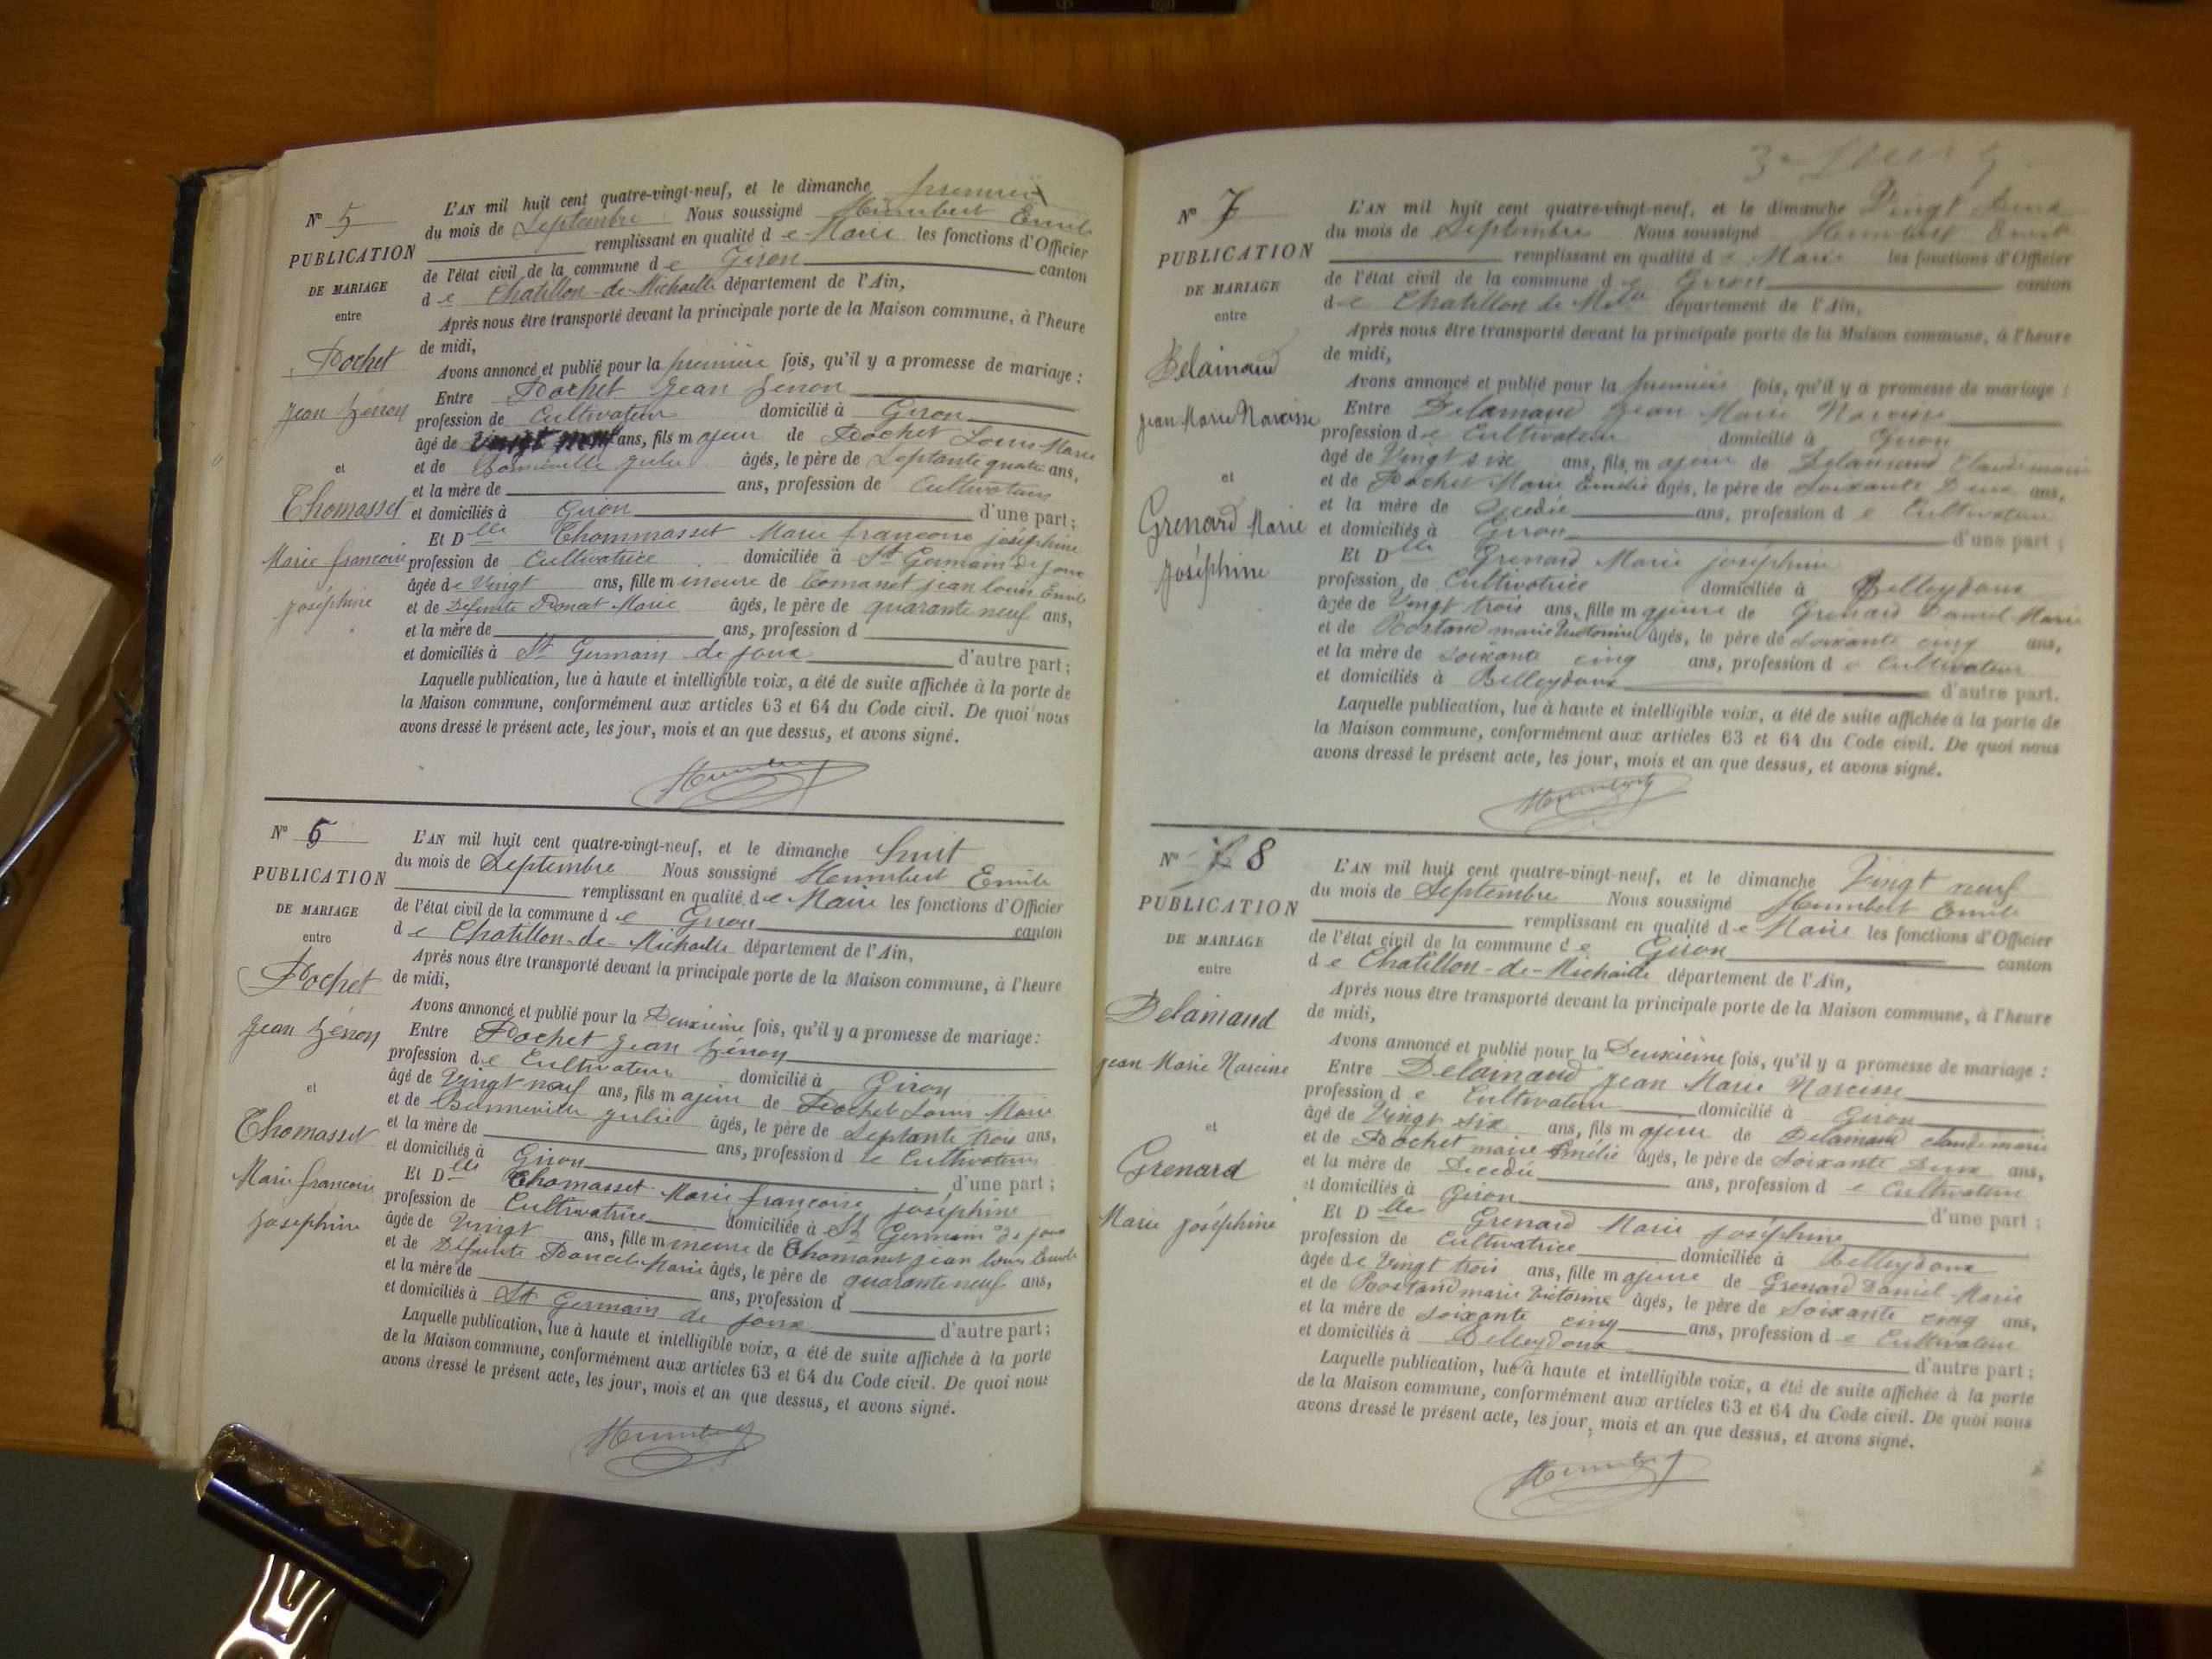 N° 5
PUBLICATION
DE MARIAGE
entre
Pochet
Jean Zénon
et
Thomasset
Marie francoise
Joséphine
L'AN mil huit cent quatre-vingt-neuf, et le dimanche premier
du mois de Septembre Nous soussigné Humbert Emile
remplissant en qualité de Maire les fonctions d'Officier
de l'état civil de la commune de Giron canton
de Chatillon-de-Michaille département de l'Ain,
Après nous être transporté devant la principale porte de la Maison commune, à l'heure
de midi,
Avons annoncé et publié pour la première fois, qu'il y a promesse de mariage :
Entre Pochet Jean Zénon
profession de Cultivateur domicilié à Giron
âgé de vingt neuf ans, fils majeur de Pochet Louis Marie
et de Bonneville Julie âgés, le père de Septante quatre ans,
et la mère de ans, profession de Cultivateurs
et domiciliés à Giron d'une part ;
Et Dlle Thommasset Marie francoise joséphine
profession de Cultivatrice domiciliée à St Germain de joux
âgée de Vingt ans, fille mineure de Tomasset jean louis Emile
et de Défunte Poncet Marie âgés, le père de quarante neuf ans,
et la mère de ans, profession d
et domiciliés à St Germain de joux d'autre part ;
Laquelle publication, lue à haute et intelligible voix, a été de suite affichée à la porte de
la Maison commune, conformément aux articles 63 et 64 du Code civil. De quoi nous
avons dressé le présent acte, les jour, mois et an que dessus, et avons signé.
Humbert
N° 6
PUBLICATION
DE MARIAGE
entre
Pochet
Jean Zénon
et
Thomasset
Marie francoise
Josephine
L'AN mil huit cent quatre-vingt-neuf, et le dimanche huit
du mois de Septembre Nous soussigné Humbert Emile
remplissant en qualité de Maire les fonctions d'Officier
de l'état civil de la commune de Giron canton
de Chatillon-de-Michaille département de l'Ain,
Après nous être transporté devant la principale porte de la Maison commune, à l'heure
de midi,
Avons annoncé et publié pour la Deuxième fois, qu'il y a promesse de mariage :
Entre Pochet Jean Zénon
profession de Cultivateur domicilié à Giron
âgé de Vingt neuf ans, fils majeur de Pochet Louis Marie
et de Bonneville Julie âgés, le père de Septante trois ans,
et la mère de ans, profession de Cultivateurs
et domiciliés à Giron d'une part ;
Et Dlle Thomasset Marie francoise joséphine
profession de Cultivatrice domiciliée à St Germain de joux
âgée de Vingt ans, fille mineure de Thomasset jean louis Emile
et de Défunte Poncet Marie âgés, le père de quarante neuf ans,
et la mère de ans, profession d
et domiciliés à St Germain de joux d'autre part ;
Laquelle publication, lue à haute et intelligible voix, a été de suite affichée à la porte
de la Maison commune, conformément aux articles 63 et 64 du Code civil. De quoi nous
avons dressé le présent acte, les jour, mois et an que dessus, et avons signé.
Humbert
N° 7
PUBLICATION
DE MARIAGE
entre
Delainaud
Jean Marie Narcisse
et
Grenard Marie
Joséphine
L'AN mil huit cent quatre-vingt-neuf, et le dimanche Vingt Deux
du mois de Septembre Nous soussigné Humbert Emile
remplissant en qualité de Maire les fonctions d'Officier
de l'état civil de la commune de Giron canton
de Chatillon de département de l'Ain,
Après nous être transporté devant la principale porte de la Maison commune, à l'heure
de midi,
Avons annoncé et publié pour la première fois, qu'il y a promesse de mariage :
Entre Delamaud Jean Marie Narcisse
profession de Cultivateur domicilié à Giron
âgé de Vingt six ans, fils majeur de Delamaud Claude marie
et de Pochet Marie Emélie âgés, le père de Soixante Deux ans,
et la mère de Décédée ans, profession de Cultivateur
et domiciliés à Giron d'une part ;
Et Dlle Grenard Marie joséphine
profession de Cultivatrice domiciliée à Belleydoux
âgée de Vingt trois ans, fille majeure de Grenard Daniel Marie
et de Rostand marie Victorine âgés, le père de soixante cinq ans,
et la mère de soixante cinq ans, profession de Cultivateur
et domiciliés à Belleydoux d'autre part.
Laquelle publication, lue à haute et intelligible voix, a été de suite affichée à la porte de
la Maison commune, conformément aux articles 63 et 64 du Code civil. De quoi nous
avons dressé le présent acte, les jour, mois et an que dessus, et avons signé.
Humbert
N° 8
PUBLICATION
DE MARIAGE
entre
Delamaud
Jean Marie Narcisse
et
Grenard
Marie Joséphine
L'AN mil huit cent quatre-vingt-neuf, et le dimanche Vingt neuf
du mois de Septembre Nous soussigné Humbert Emile
remplissant en qualité de Maire les fonctions d'Officier
de l'état civil de la commune de Giron canton
de Chatillon-de-Michaille département de l'Ain,
Après nous être transporté devant la principale porte de la Maison commune, à l'heure
de midi,
Avons annoncé et publié pour la Deuxième fois, qu'il y a promesse de mariage :
Entre Delamaud Jean Marie Narcisse
profession de Cultivateur domicilié à Giron
âgé de Vingt six ans, fils majeur de Delamaud claude marie
et de Pochet marie Emélie âgés, le père de Soixante Deux ans,
et la mère de Décédée ans, profession de Cultivateur
et domiciliés à Giron d'une part ;
Et Dlle Grenard Marie joséphine
profession de Cultivatrice domiciliée à Belleydoux
âgée de Vingt trois ans, fille majeure de Grenard Daniel Marie
et de Rostand marie Victorine âgés, le père de Soixante cinq ans,
et la mère de soixante cinq ans, profession de Cultivateur
et domiciliés à Belleydoux d'autre part ;
Laquelle publication, lue à haute et intelligible voix, a été de suite affichée à la porte
de la Maison commune, conformément aux articles 63 et 64 du Code civil. De quoi nous
avons dressé le présent acte, les jour, mois et an que dessus, et avons signé.
Humbert